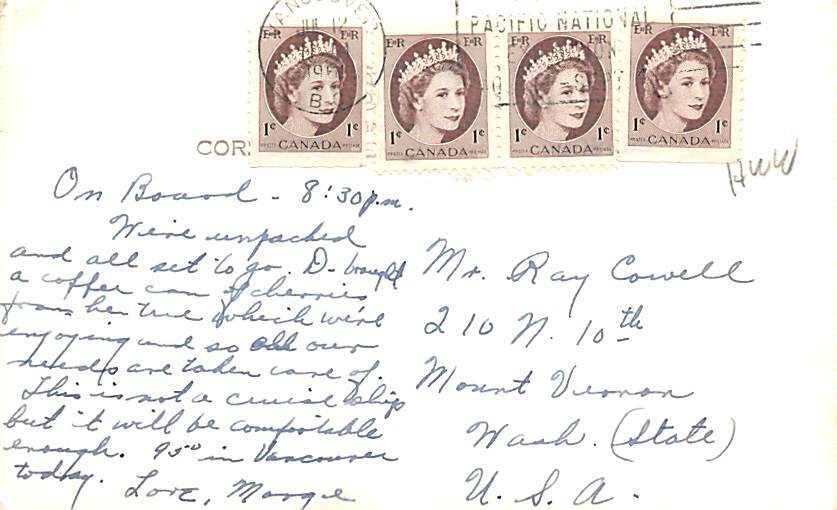 VANCOUVER
JUL 12
B.C.
PACIFIC NATIONAL
E II R
1¢ 1¢
POSTES CANADA POSTAGE
E II R
1¢ 1¢
POSTES CANADA POSTAGE
E II R
1¢ 1¢
POSTES CANADA POSTAGE
E II R
1¢ 1¢
POSTES CANADA POSTAGE
COR
HWW
On Board - 8:30 p.m.
We're unpacked
and all set to go. D- brought
a coffee can of cherries
from her tree which we're
enjoying and so all our
needs are taken care of.
This is not a cruise ship
but it will be comfortable
enough. 95° in Vancouver
today.
Love, Marge
Mr. Ray Cowell
210 N. 10th
Mount Vernon
Wash. (State)
U. S. A.